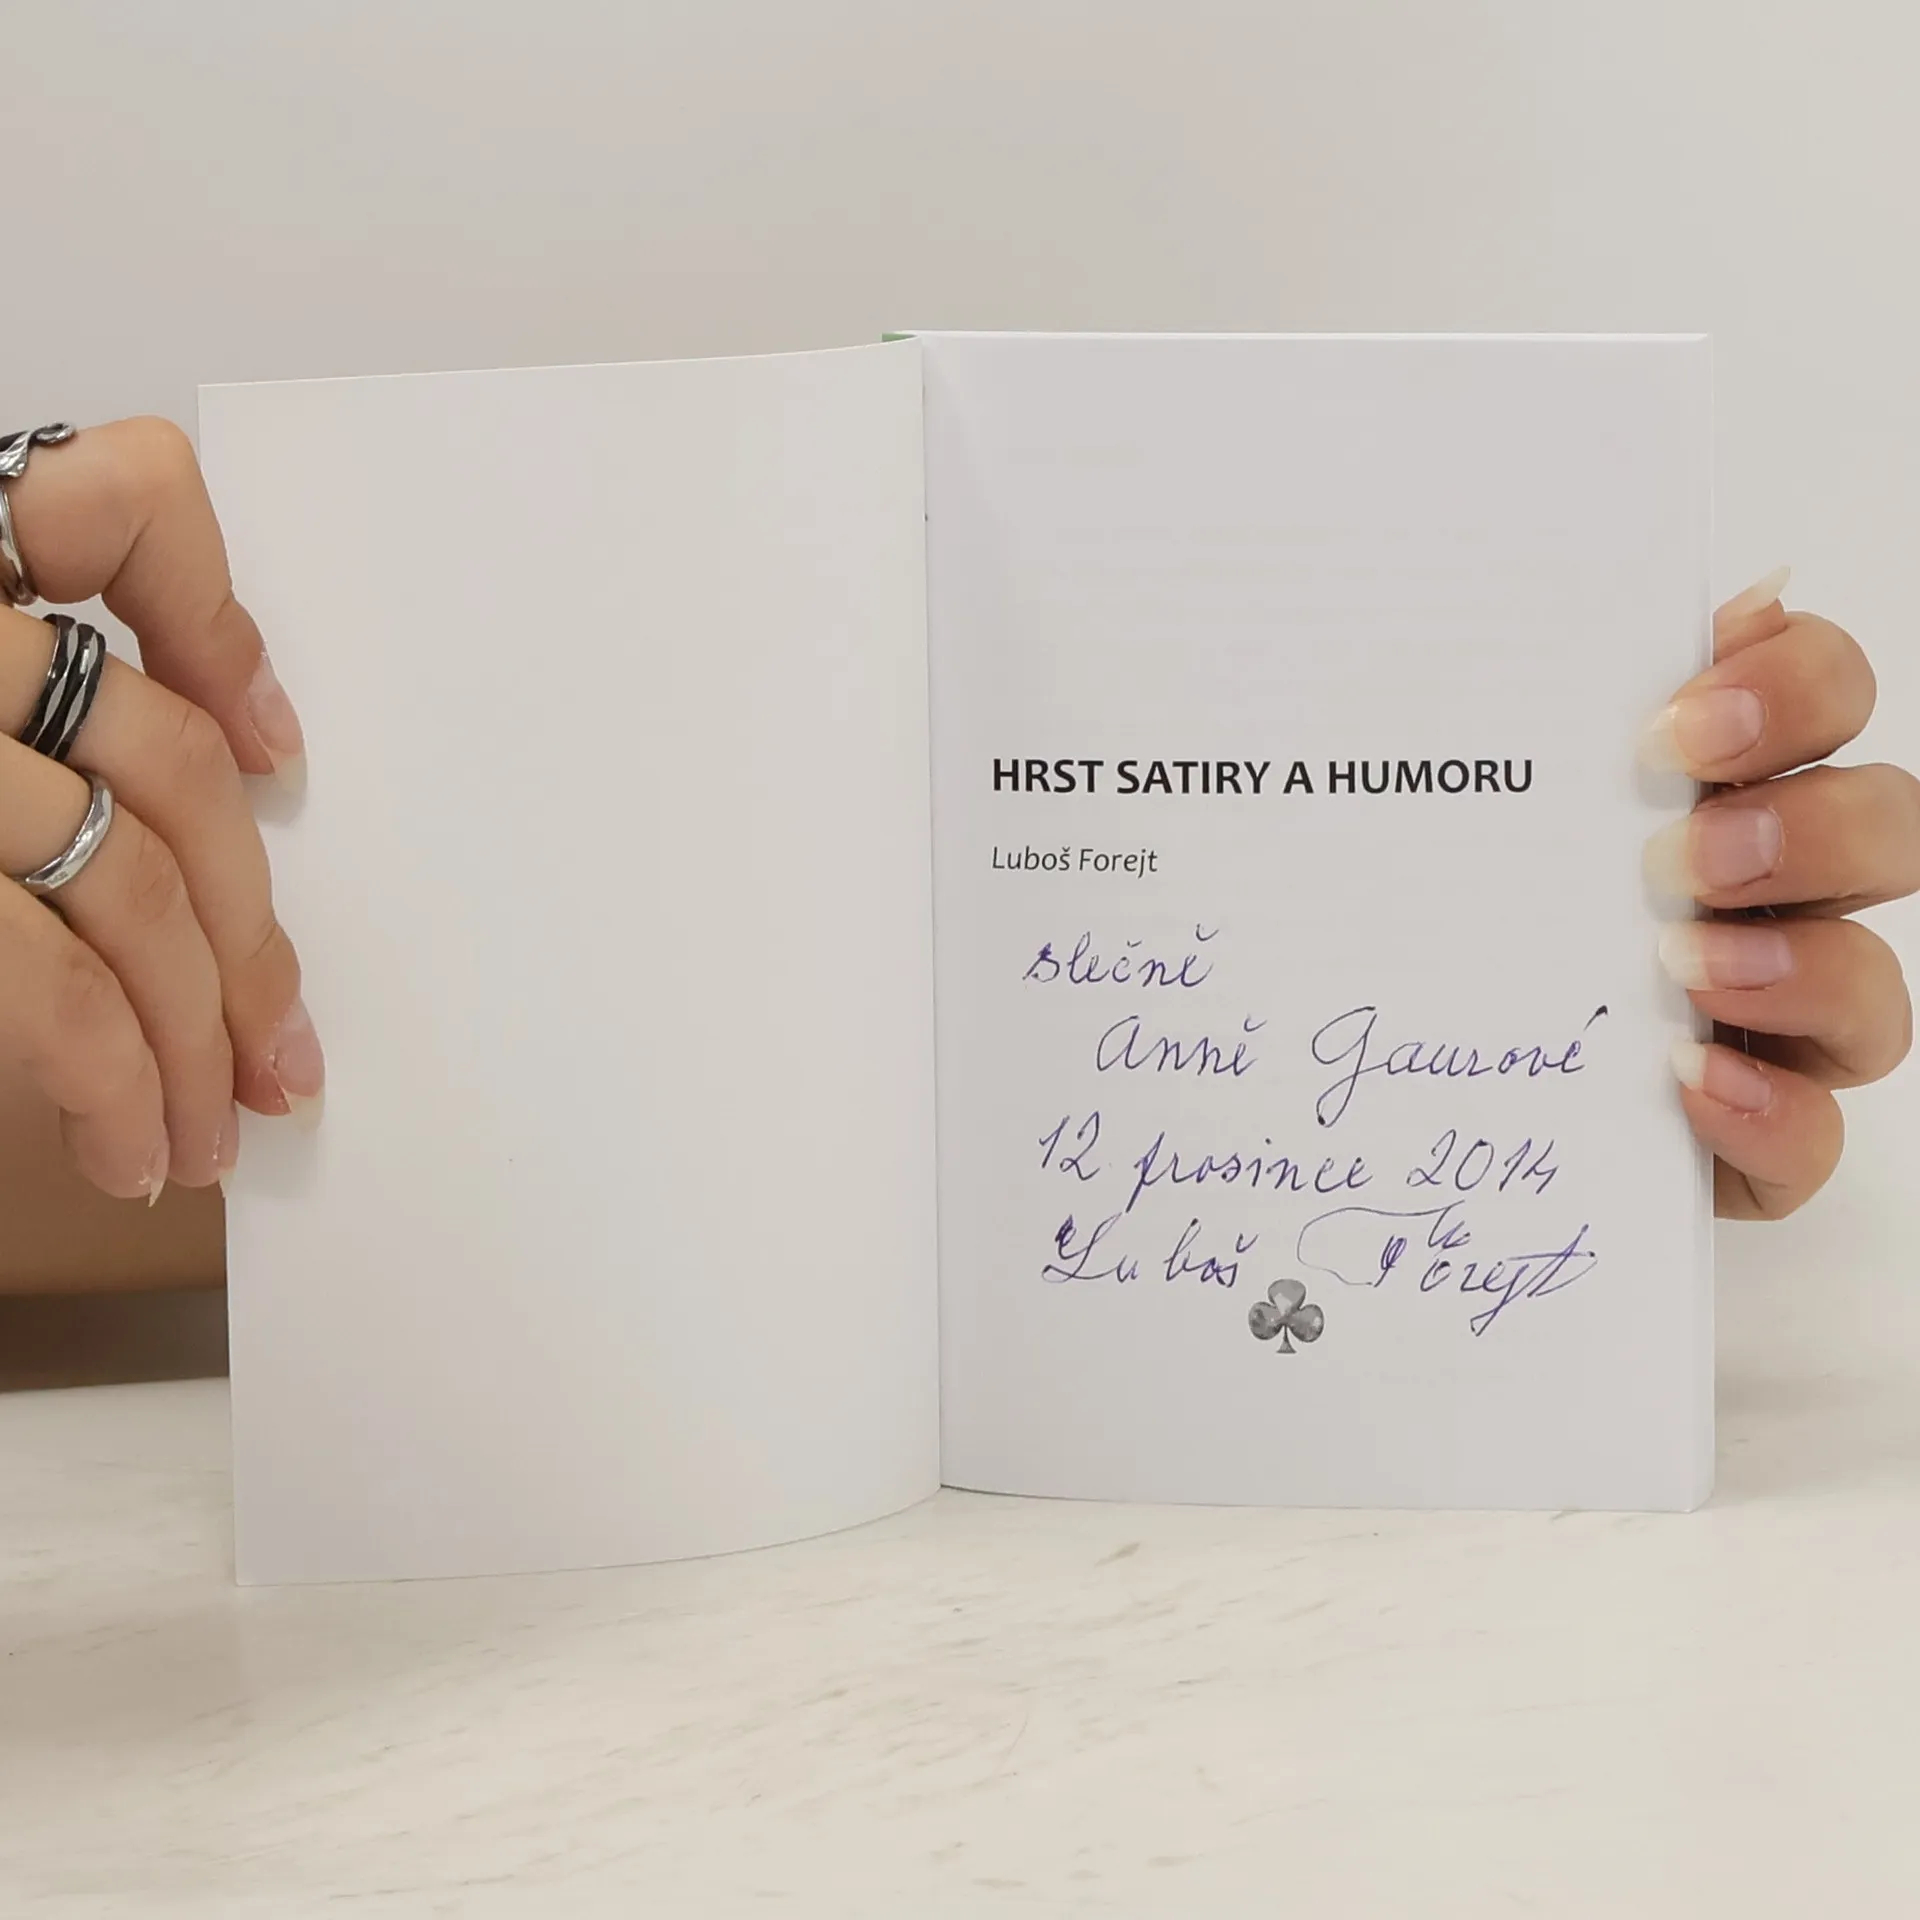 HRST SATIRY A HUMORU
Luboš Forejt
slečně
Anně Gaurové
12 prosince 2014
Luboš Forejt